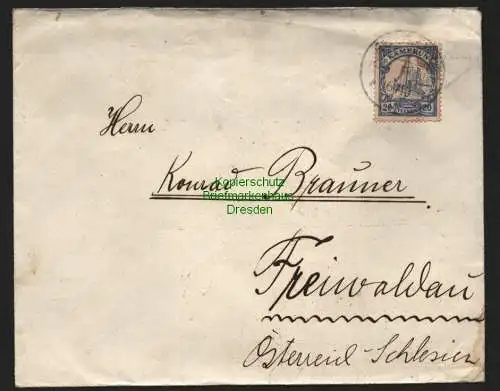 KAMERUN
20 20
Herrn
Konrad Brauner
Kopierschutz
Briefmarkenhaus
Dresden
Freiwaldau
Österreich-Schlesien